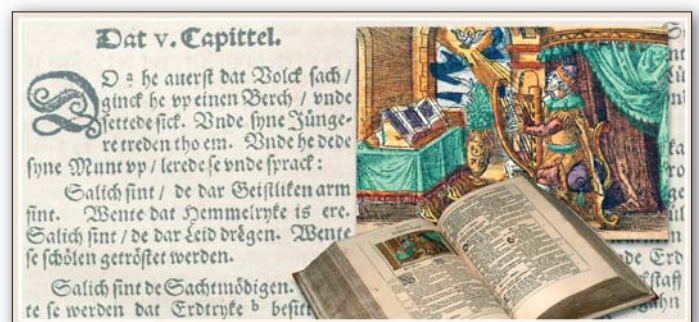 Dat v. Capittel.
DO ª he auerſt dat Volck ſach /
ginck he vp einen Berch / vnde
ſettede ſick. Vnde ſyne Jünge-
re treden tho em. Vnde he dede
ſyne Munt vp / lerede ſe vnde ſprack :
Salich ſint / de dar Geiſtliken arm
ſint. Wente dat Hemmelryke is ere.
Salich ſint / de dar Leid drëgen. Wente
ſe ſchölen getröſtet werden.
Salich ſint de Sachtmödigen.
te ſe werden dat Erdtryke ᵇ beſitt